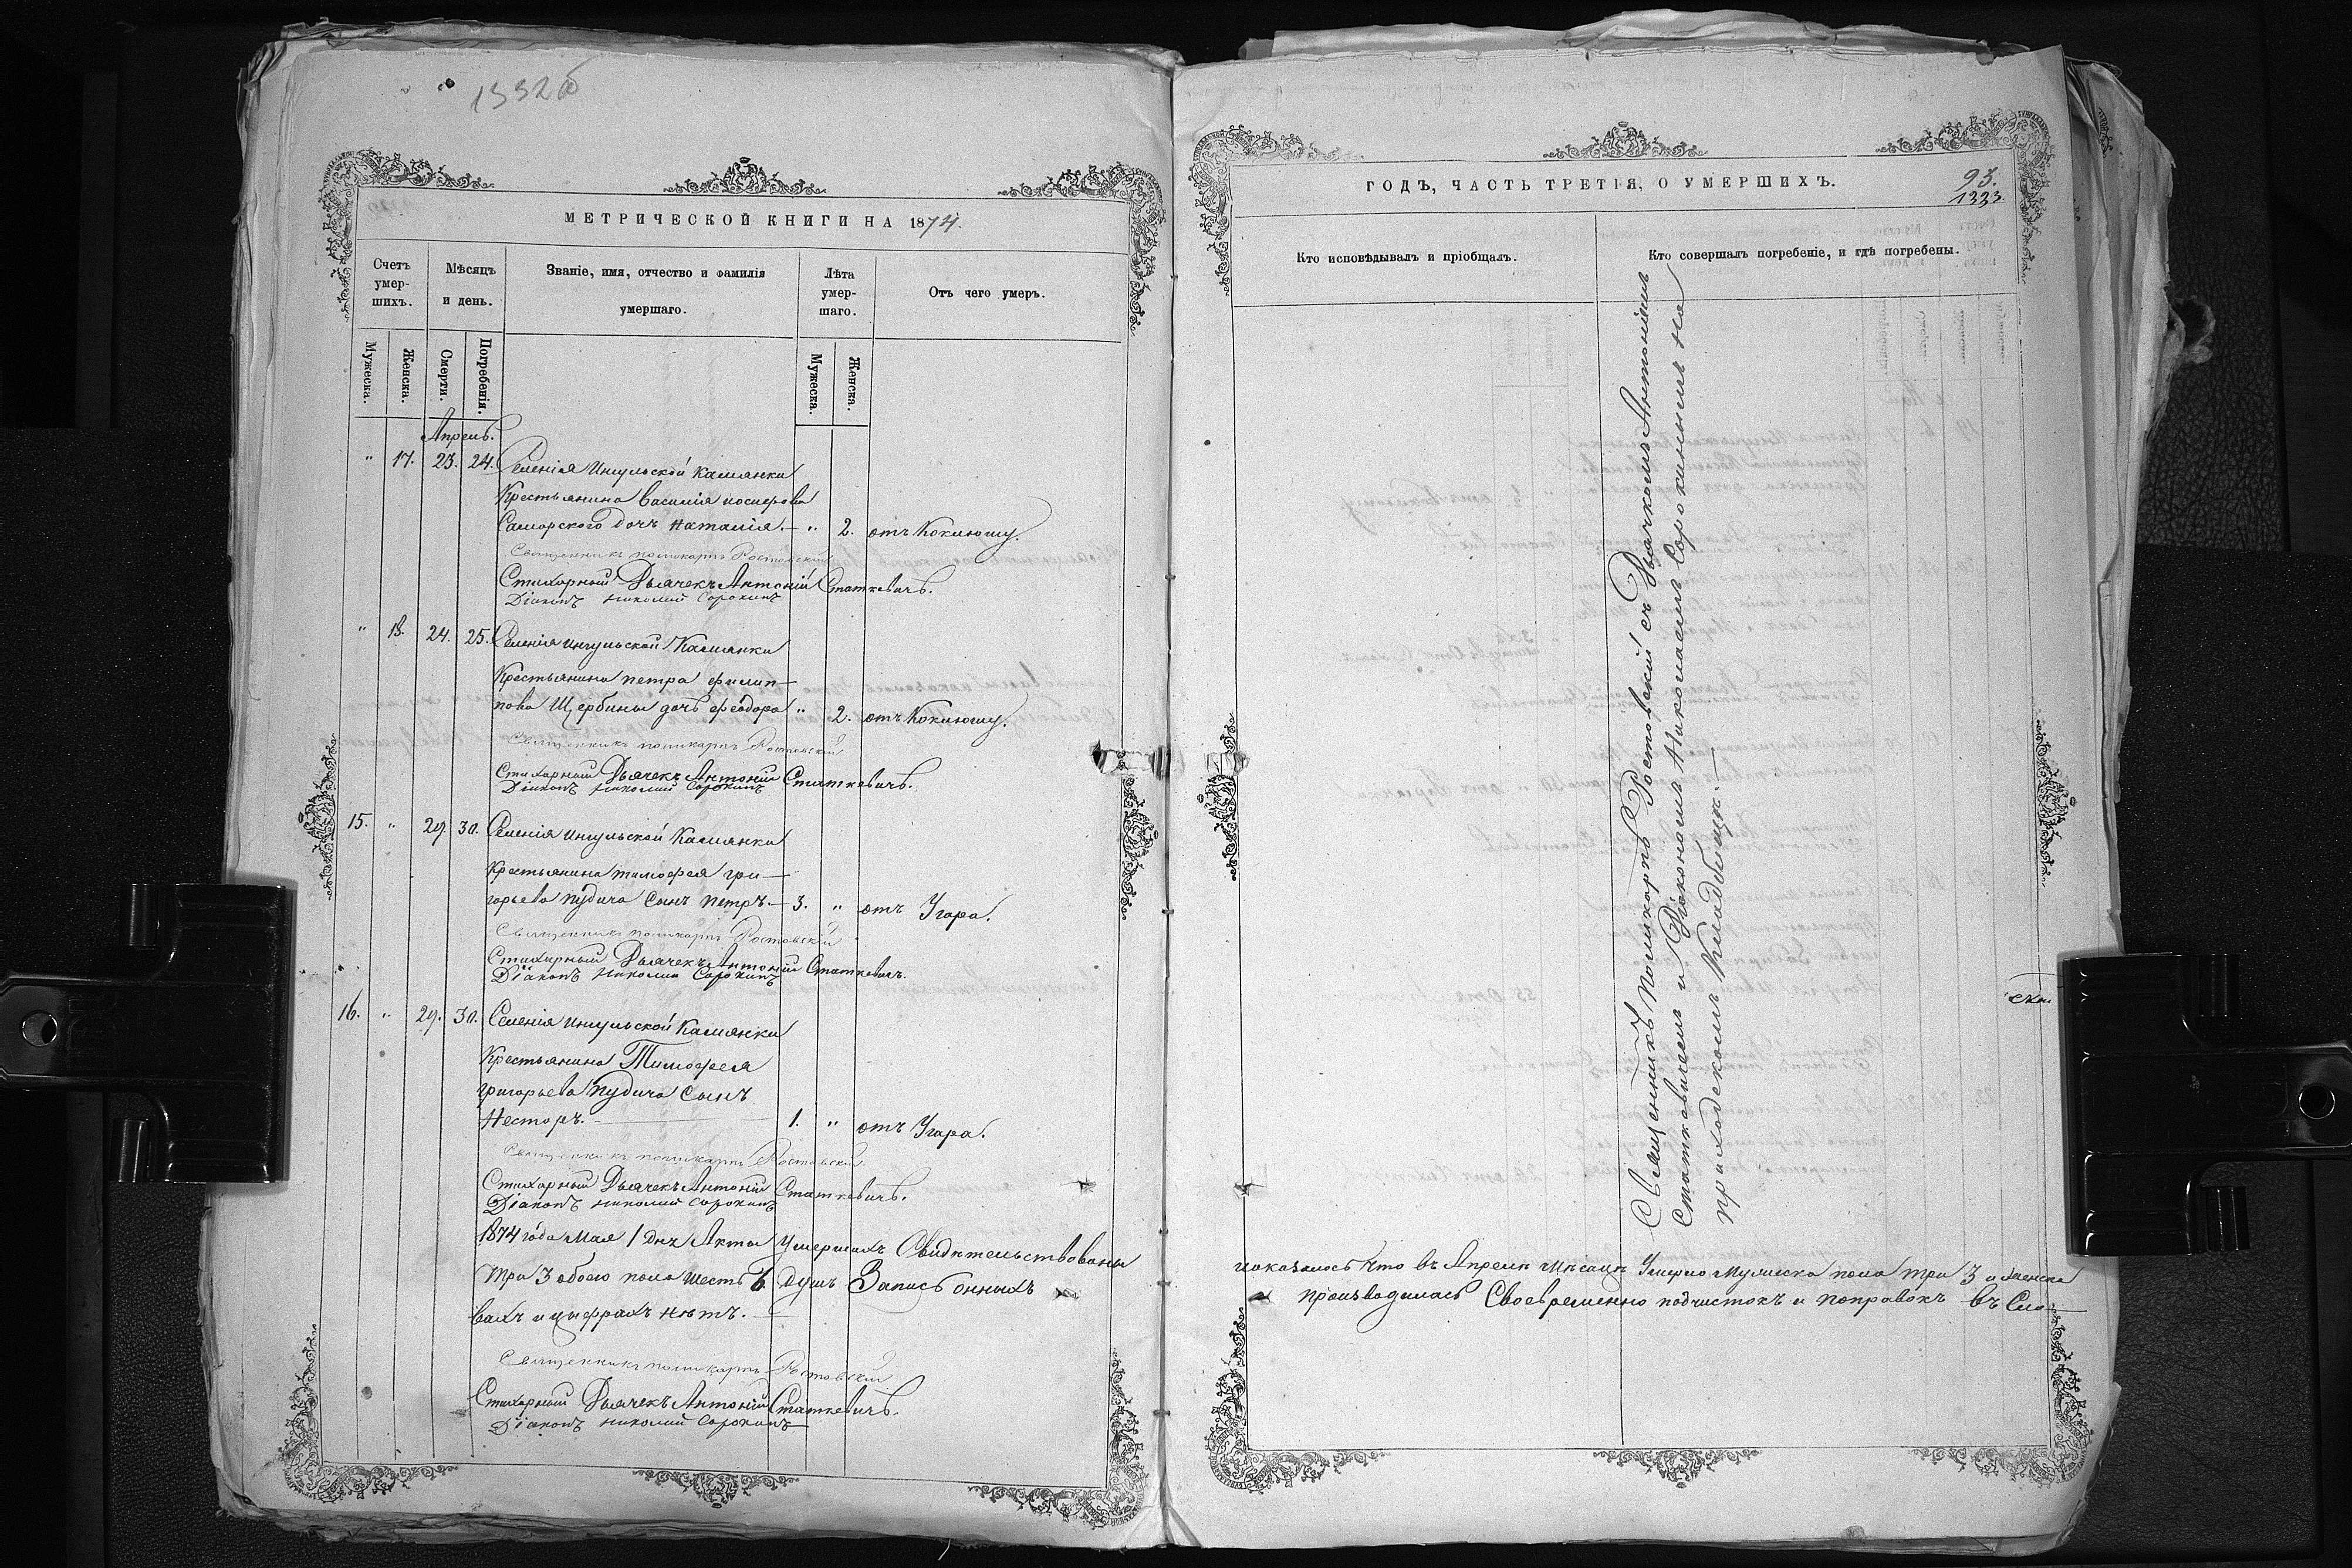 1332об
МЕТРИЧЕСКОЙ КНИГИ НА 1874.
Счетъ умер-шихъ.
Мѣсяцъ и день.
Званіе, имя, отчество и фамилія умершаго.
Лѣта умер-шаго.
Отъ чего умеръ.
Мужеска.
Женска.
Смерти.
Погребенія.
Мужеска.
Женска.
Апрель.
" 17. 23. 24. Селенія Ингульской Камянки
Крестьянина Василія иосифова
Саморского дочь Наталія. — " 2. отъ Коклюшу.
Священникъ поликарпъ Ростовскій
Стихарный Дьячекъ Антоній Статкевичъ.
Діаконъ Николай Сорокинъ
" 18. 24. 25. Селенія ингульской Камянки
Крестьянина петра филип—
пова Щербины дочь феодора " 2. отъ Коклюшу.
Священникъ поликарпъ Ростовскій
Стихарный Дьячекъ Антоній Статкевичъ.
Діаконъ Николай Сорокинъ
15. " 29. 30. Селенія ингульской Камянки
Крестьянина тимофея гри—
горьева пудича Сынъ петръ. — 3. " отъ Угара.
Священникъ поликарпъ Ростовскій
Стихарный Дьячекъ Антоній Статкевичъ.
Діаконъ Николай Сорокинъ
16. " 29. 30. Селенія ингульской Камянки
Крестьянина Тимофея
григорьева пудича Сынъ
Несторъ. — 1. " отъ Угара.
Священникъ поликарпъ Ростовскій
Стихарный Дьячекъ Антоній Статкевичъ.
Діаконъ Николай Сорокинъ
1874 года Мая 1 дня Акты Умершихъ Свидѣтельствованы
три 3 обоего пола шесть 6 душъ Запись онныхъ
вахъ и цыфрахъ нѣтъ. —
Священникъ поликарпъ Ростовскій
Стихарный Дьячекъ Антоній Статкевичъ.
Діаконъ Николай Сорокинъ
ГОДЪ, ЧАСТЬ ТРЕТІЯ, О УМЕРШИХЪ.
93.
1333.
Кто исповѣдывалъ и пріобщалъ.
Кто совершалъ погребеніе, и гдѣ погребены.
Священникъ Поликарпъ Ростовскій съ Дьячкомъ Антоніемъ
Статкевичемъ и Діакономъ Николаемъ Сорокинымъ на
приходскомъ Кладбищѣ. —
показалось что въ Апрелѣ мѣсяцѣ Умерло мужеска пола три 3 и женска
производилась Своевременно подчистокъ и поправокъ въ Сло—